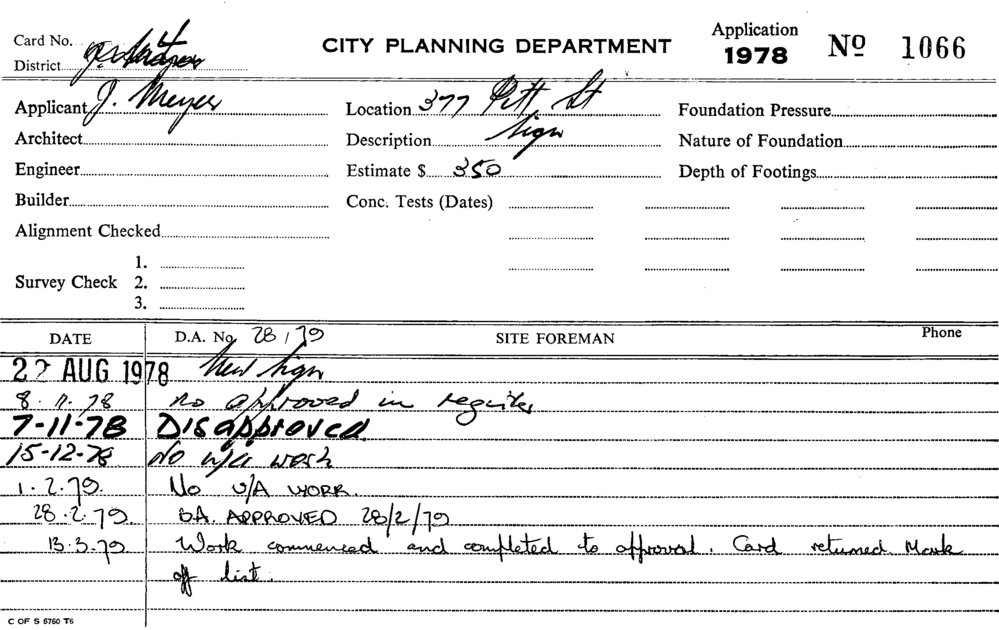 Card No. 4
District
CITY PLANNING DEPARTMENT
Application
1978 Nº 1066
Applicant J. Meyer
Location 377 Pitt St
Foundation Pressure
Architect
Description Sign
Nature of Foundation
Engineer
Estimate $ 350
Depth of Footings
Builder
Conc. Tests (Dates)
Alignment Checked
Survey Check
1.
2.
3.
DATE D.A. No. 28/79 SITE FOREMAN Phone
22 AUG 1978 New Sign
8.11.78 no approved in register
7-11-78 Disapproved
15-12-78 No u/a work
1.2.79. No U/A WORK.
28.2.79. B.A. APPROVED 28/2/79
13.3.79. Work commenced and completed to approval. Card returned. Mark
off list.
C OF S 6760 T6